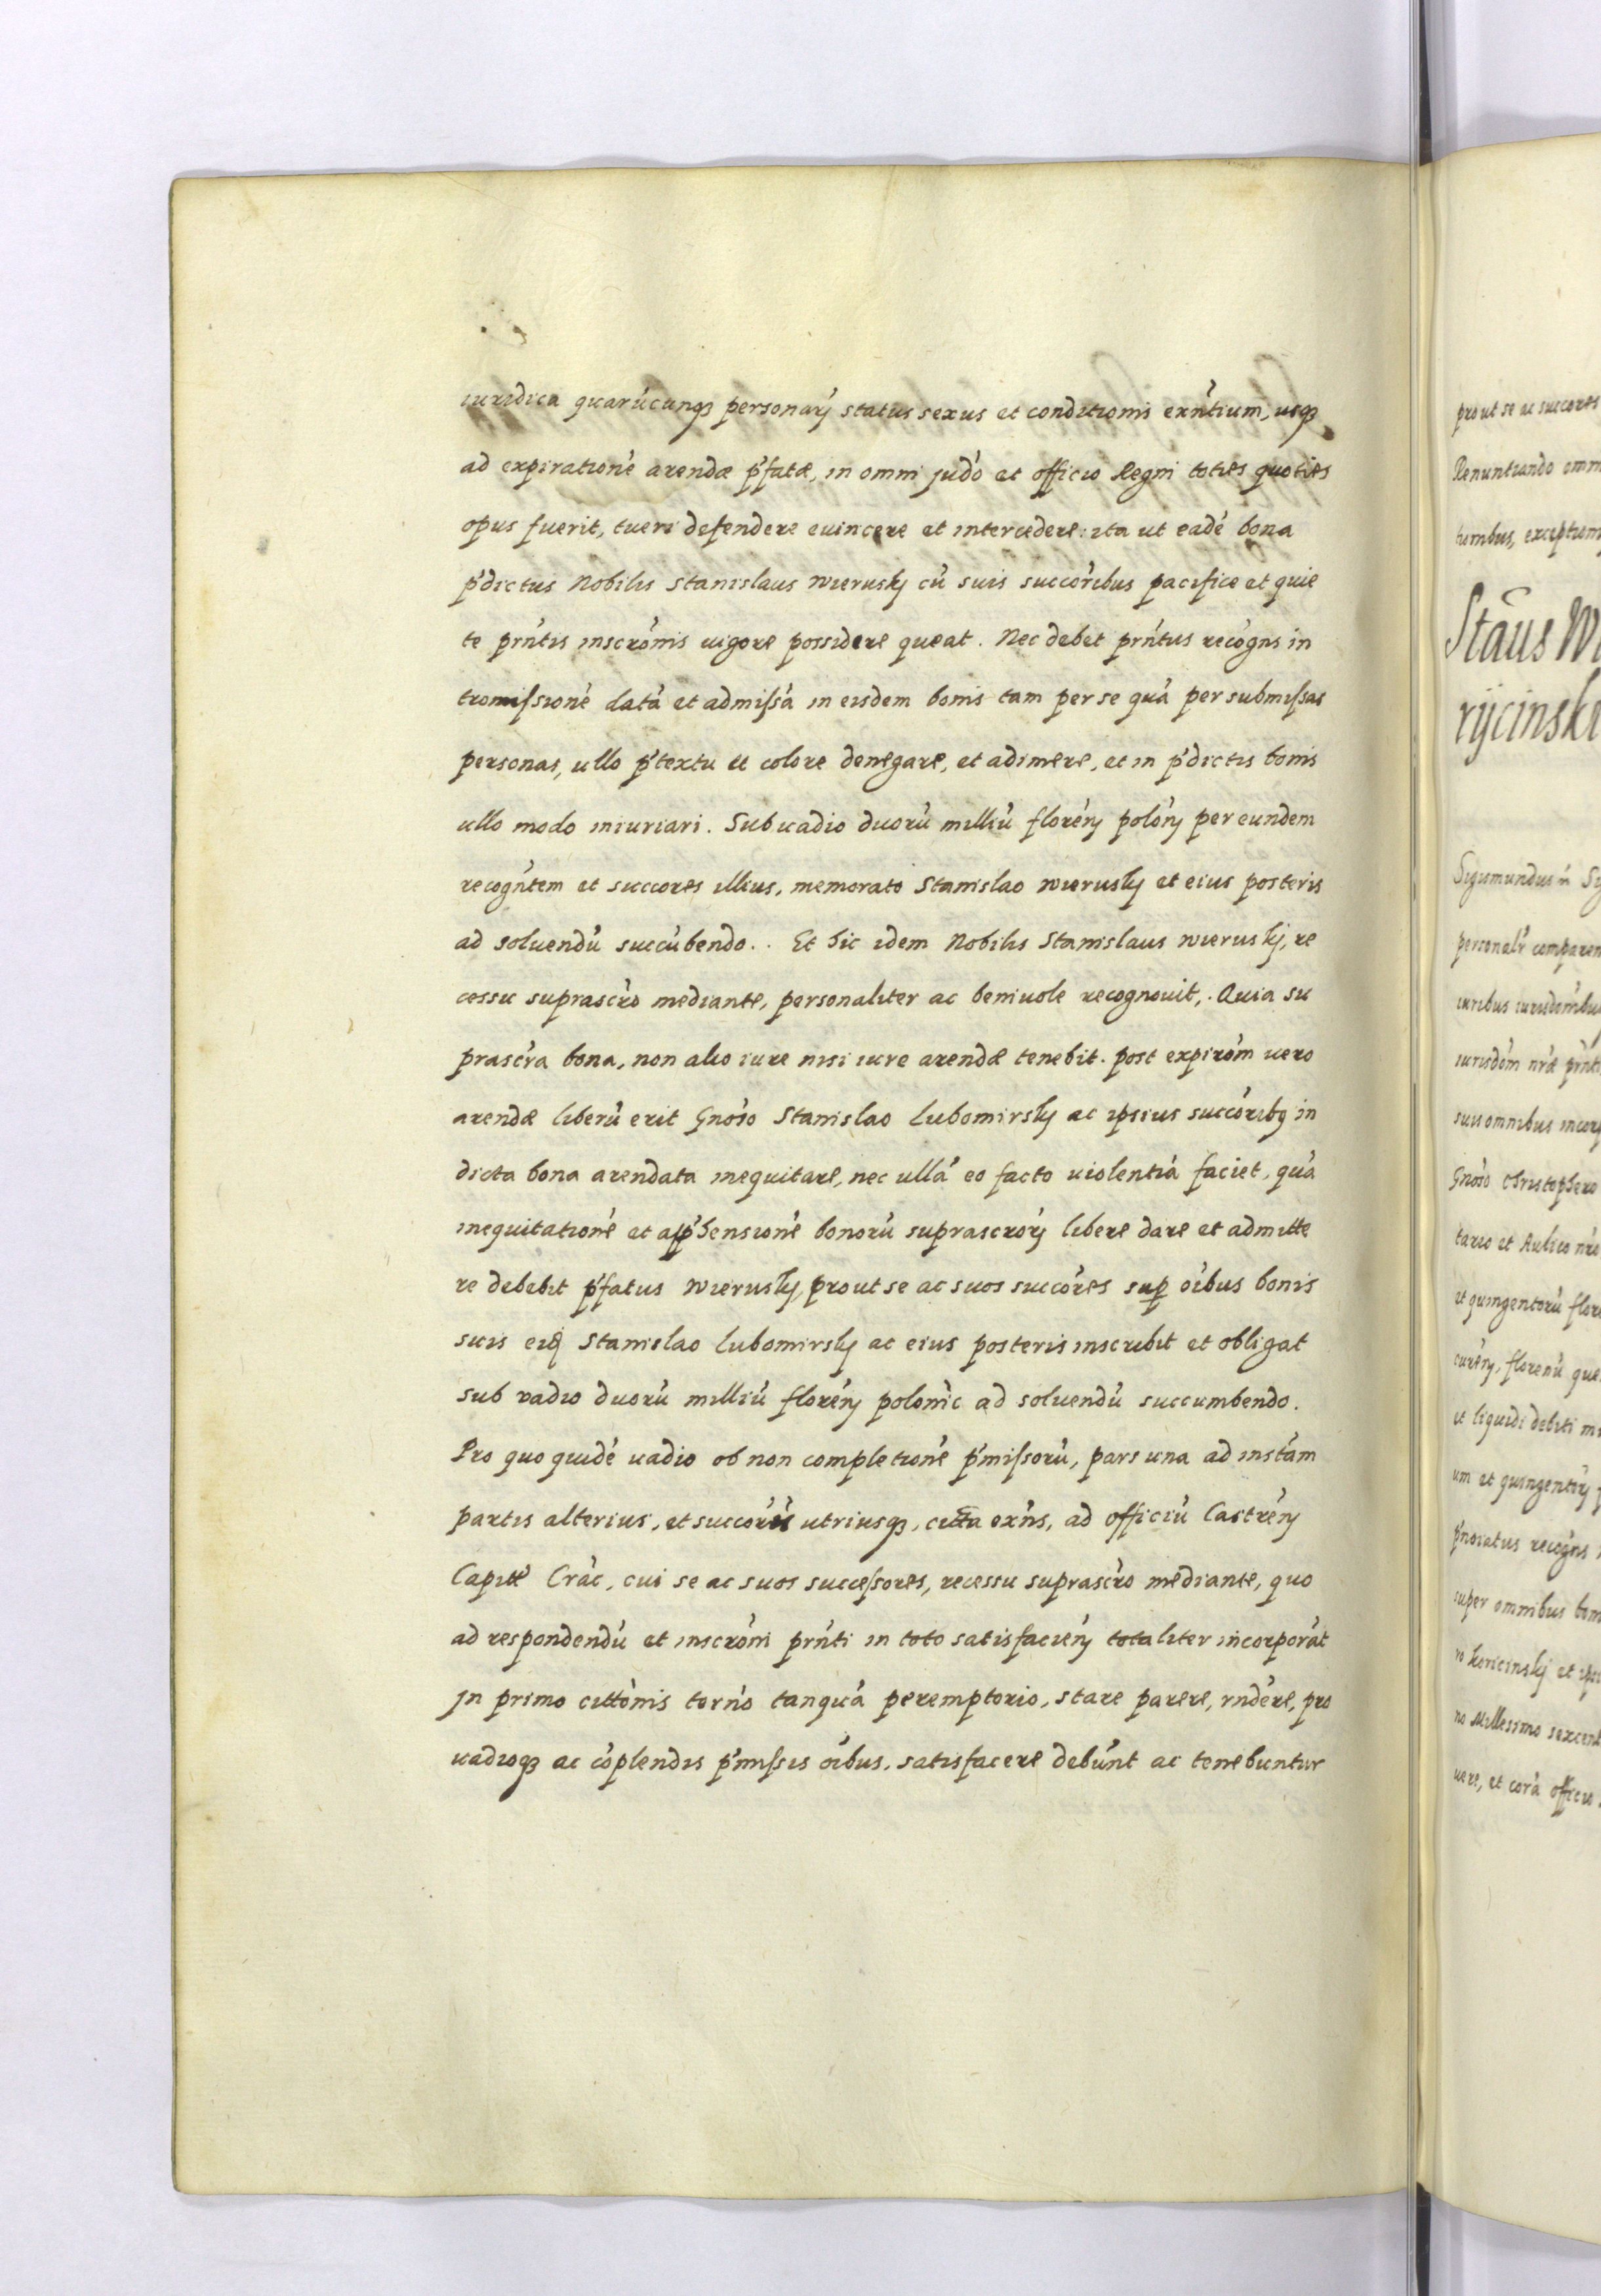 iuridica quarúcunqз personarȷ status sexus et conditionis exńtium, usqз
ad expirationé arendæ ṕfatæ, in omni judó et officio Regni toties quoties
opus fuerit, tueri defendere euincere et intercedere: ita ut eadé bona
ṕdictus Nobilis Stanislaus Wierusky cú suis succoribus pacifice et quie
te prńtis inscrónis uigore possidere queat. Nec debet prńtus recogns in
tromiſsioné datá et admiſsá in eisdem bonis tam per se quá per submiſsas
personas, ullo ṕtextu et colore denegare, et adimere, et in ṕdictis bonis
ullo modo iniuriari. Sub uadio duorú milliú floréŋ polóŋ per eundem
recogńtem et succores illius, memorato Stanislao Wierusky et eius posteris
ad soluendú succúbendo.. Et hic idem Nobilis Stanislaus Wierusky, re
cessu suprascŕo mediante, personaliter ac beniuole recognouit,. Quia su
prascŕa bona, non alio iure nisi iure arendæ tenebit. post expiróm uero
arendæ liberú erit Gnóso Stanislao Lubomirsky ac ipsius succóribꝗ in
dicta bona arendata inequitare, nec ullá eo facto uiolentiá faciet, quá
inequitationé et apṕhensioné bonorú suprascrórȷ libere dare et admitte
re debebit ṕfatus Wierusky, prout se ac suos succóres sup óibus bonis
suis eidꝫ Stanislao Lubomirsky ac eius posteris inscribit et obligat
sub vadio duorú milliú floréŋ polonic̀ ad soluendú succumbendo.
Pro quo quidé uadio ob non completioné ṕmiſsorú, pars una ad instám
partis alterius, et succorés utriusqз, citta exńs, ad officiú Castréŋ
Capitt Crác, cui se ac suos succeſsores, recessu suprascŕo mediante, quo
ad respondendú et inscróni prńti in toto satisfaciéŋ totaliter incorporát
Jn primo cittónis tornó tanquá peremptorio, stare parere, rndére, pro
uadioqз ac cóplendis ṕmiſsis óibus, satisfacere debúnt ac tenebuntur
prout se ac succores
Renuntiando omn
tionibus, exception
Stãus Wi
rijcinski
Sigismundus
personalr comparen
iuribus iurisdonibus
iurisdóm nŕæ prńti
suis omnibus incorp
Gnóso Christophero
tario et Aulico nŕo
et quingentorú flor
curéŋ, florenú que
et liquidi debiti
um et quingentiȷ
ṕnoiatus recogns
super omnibus bon
ro Koricinskȷ et
no Millesimo sexcent
uere, et corá officio